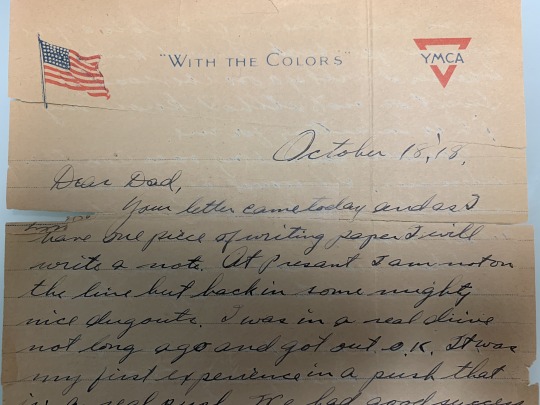 "WITH THE COLORS"
YMCA
October 18, '18.
Dear Dad,
Your letter came today and as I
have one piece of writing paper I will
write a note. At presant I am not on
the line but back in some mighty
nice dugouts. I was in a real drive
not long ago and got out O.K. It was
my first experience in a push that
is a real push. We had good success